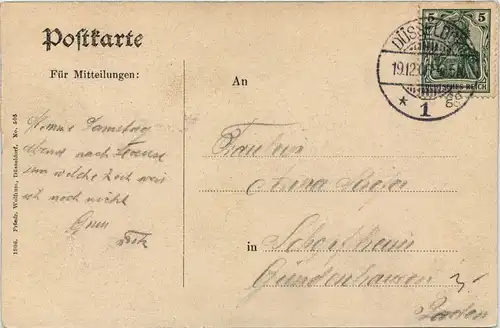 Postkarte
Für Mitteilungen:
An
DÜSSELDORF
19.12.0
* 1 gg
5 5
DEUTSCHES REICH
Komme Samstag
abend nach Hause
um welche Zeit weis
ich noch nicht
Gruss
Fritz
Fräulein
Anna
in
Schopfheim
Gündenhausen
Baden
1504. Friedr. Wolfrum, Düsseldorf. No. 505